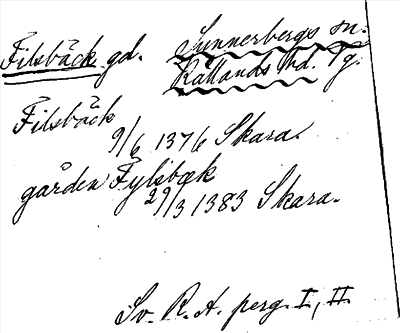 Filsbäck gd. Sunnerbergs sn.
Kållands hd. Vg.
Filsbäck
9/6 1376 Skara.
gården Fylsbæk
29/3 1383 Skara.
Sv. R. A. perg. I, II.